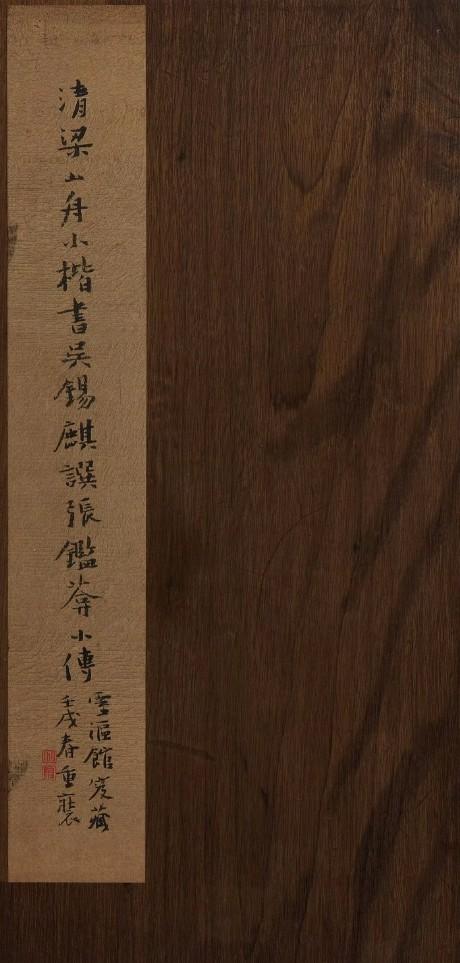 清梁山舟小楷書吳錫麒譔張鑑菴小傳
雪漚館寔藏
壬戌春重裝